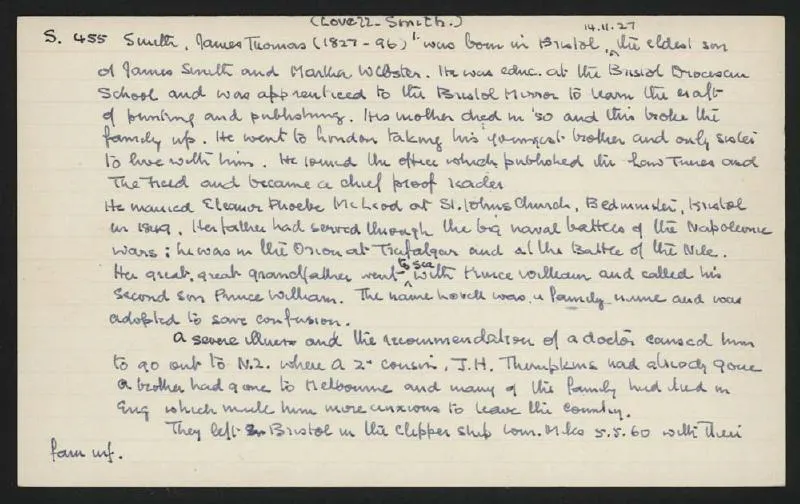 (Lovell-Smith.)
14.11.27
S. 455 Smith, James Thomas (1827-96) was born in Bristol, the eldest son
of James Smith and Martha Webster. He was educ. at the Bristol Diocesan
School and was apprenticed to the Bristol Mirror to learn the craft
of printing and publishing. His mother died in '50 and this broke the
family up. He went to London taking his youngest brother and only sister
to live with him. He joined the office which published the Law Times and
The Field and became a chief proof reader
He married Eleanor Phoebe McLeod at St. Johns Church, Bedminster, Bristol
in 1849. Her father had served through the big naval battles of the Napoleonic
wars; he was in the Orion at Trafalgar and at the Battle of the Nile.
Her great, great grandfather went to sea with Prince William and called his
second son Prince William. The name Lovell was a family name and was
adopted to save confusion.
A severe illness and the recommendation of a doctor caused him
to go out to N.Z. where a 2nd cousin, J.H. Thompkins had already gone
a brother had gone to Melbourne and many of the family had died in
Eng which made him more anxious to leave the country.
They left Bristol in the clipper ship Wm. Miles 5.5.60 with their
fam inf.